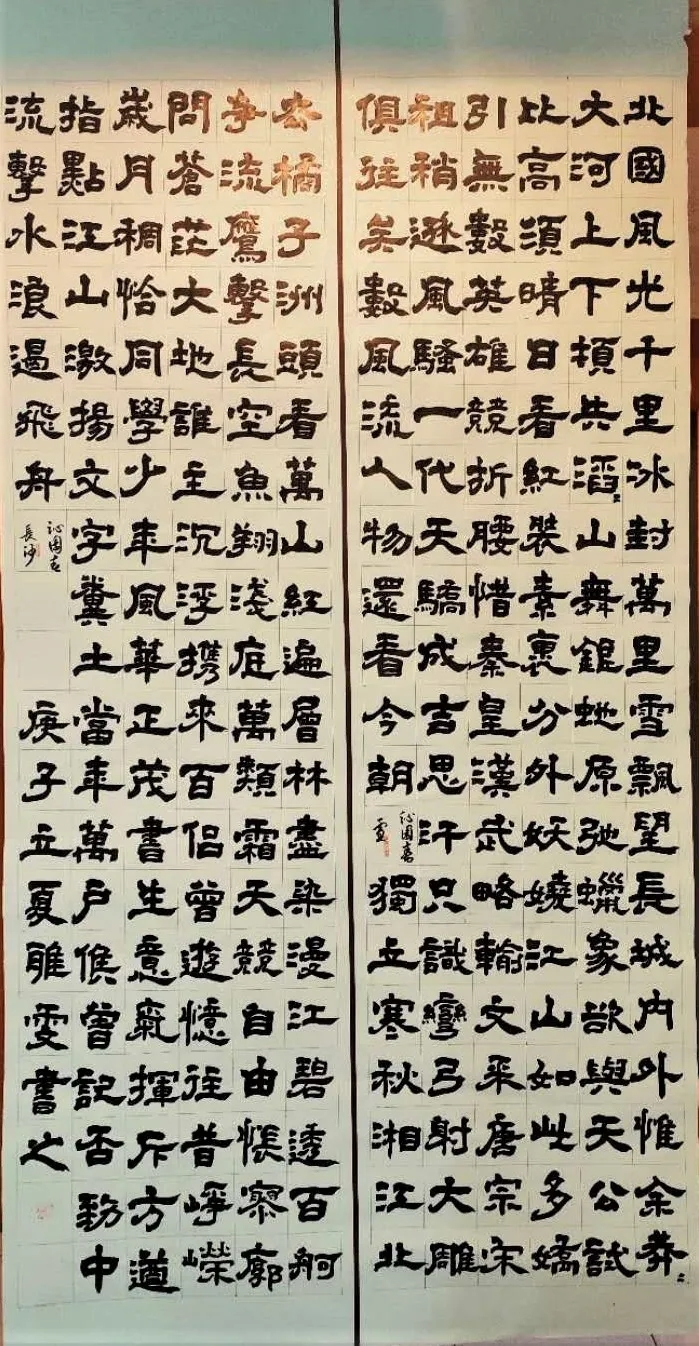 北國風光千里冰封萬里雪飄望長城内外惟余莽〻
大河上下頓共滔〻山舞銀虵原弛蠟象欲與天公試
比高須晴日看紅裝素裹分外妖嬈江山如此多嬌
引無數英雄競折腰惜秦皇漢武略輸文采唐宗宋
祖稍遜風騷一代天驕成吉思汗只識彎弓射大雕
俱往矣數風流人物還看今朝
沁園春
雪
獨立寒秋湘江北
去橘子洲頭看萬山紅遍層林盡染漫江碧透百舸
爭流鷹擊長空魚翔淺底萬類霜天競自由悵寥廓
問蒼茫大地誰主沉浮携來百侣曾遊憶往昔崢嶸
歲月稠恰同學少年風華正茂書生意氣揮斥方遒
指點江山激揚文字糞土當年萬户侯曾記否到中
流擊水浪遏飛舟
沁園春
長沙
庚子立夏雅雯書之